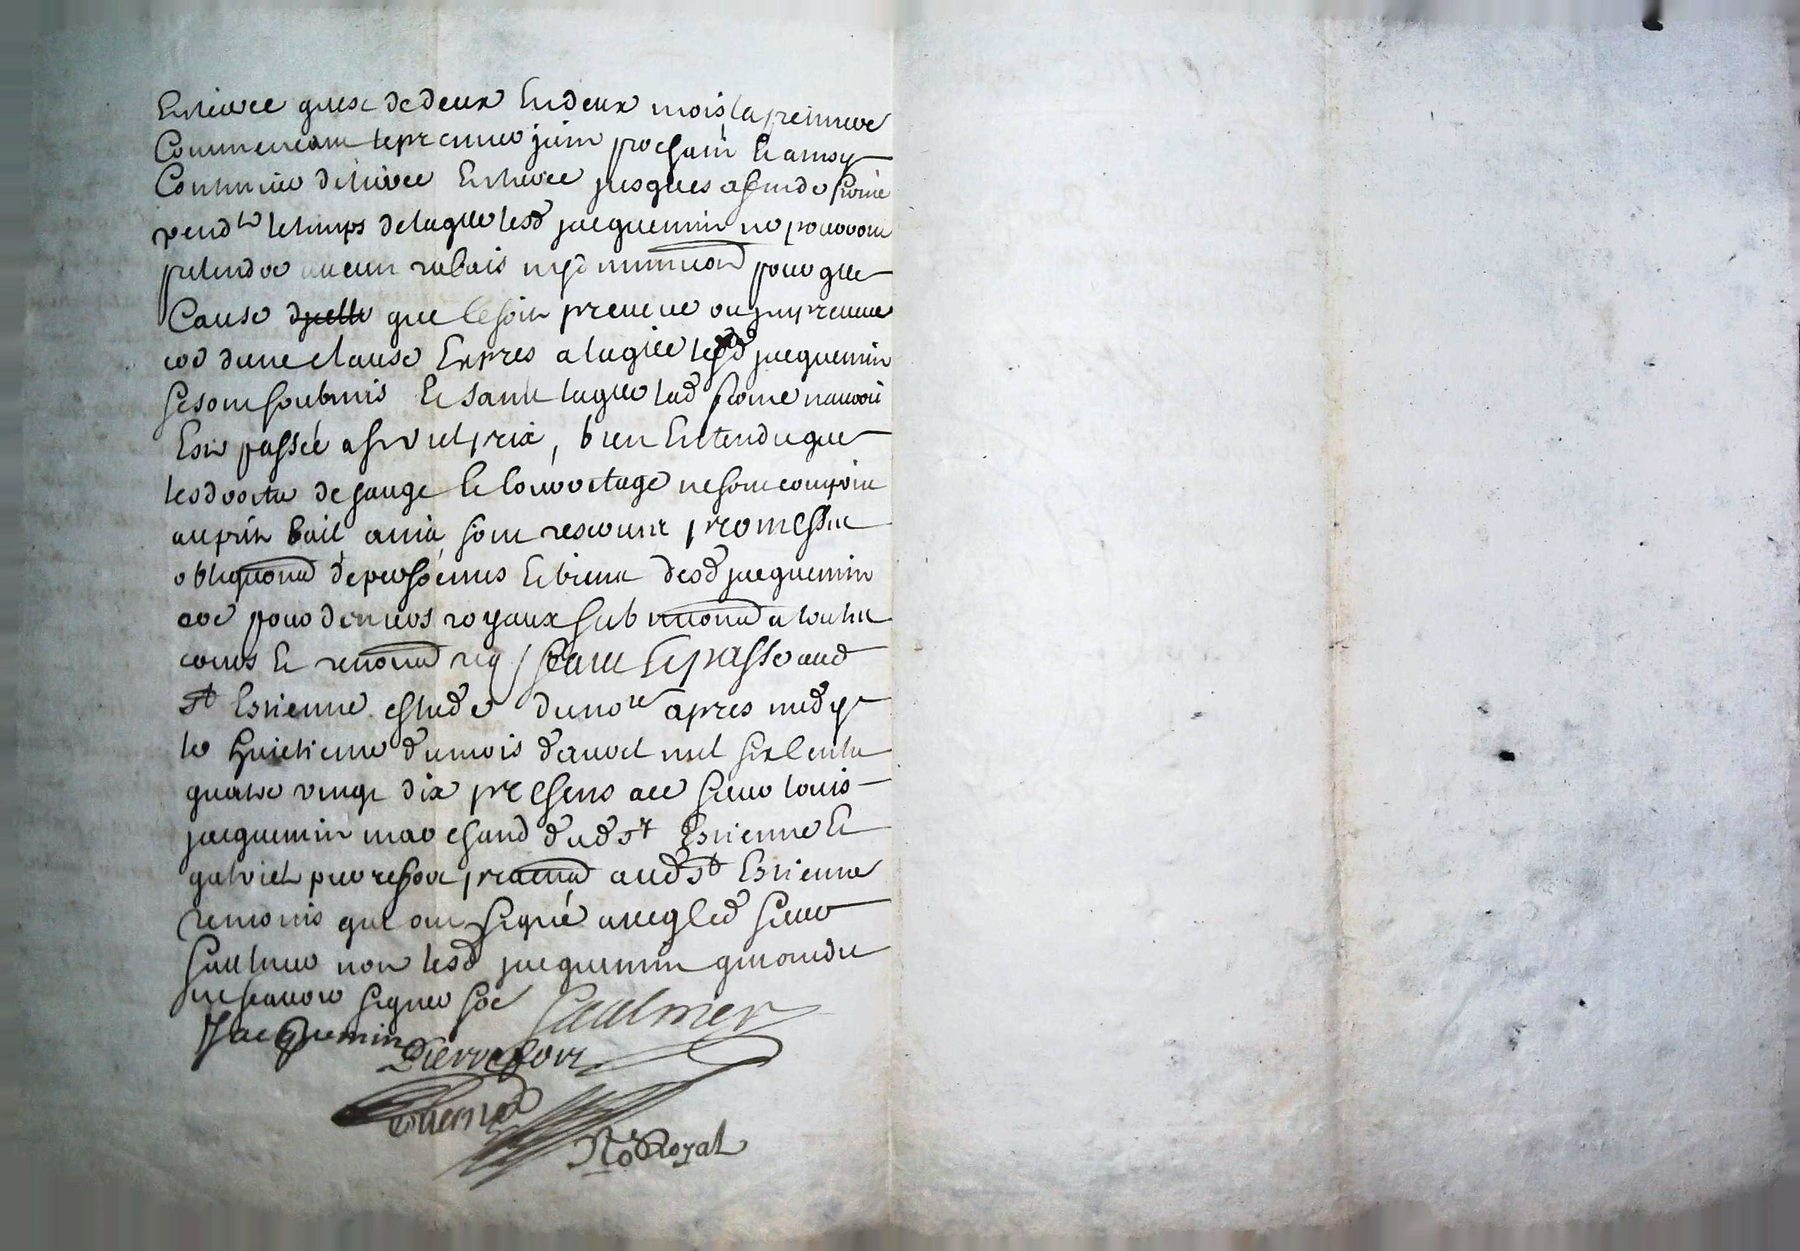 Entieree quese de deux En deux mois la premiere
Commencant le premier juin prochain Et ainsy
Continuer de tierce En tierce jusques a fin de ferme
pend.t le temps de laquelle lesd jacquemin ne pouront
pretendre aucun rabais ny diminution pour quel
Cause que Ce soit preveue ou impreveue
Cod dune clause Expres a laqlle lesd jacquemin
se sont soubmis Et sans laqlle lad ferme nauroit
Este passée a si vil prix, bien Entendu que
les droits de gauge Et Courretage ne sont compris
au prnt bail ainsi promesse
obligaond de personnes Et biens desd jacquemin
coe pour deniers royaux submitiond a toutes
cours Et renond req fait Et passé aud
st Estienne estude du no.re apres midy
le huictieme du mois davril mil six Cents
quatre vingt dix presens a ce sieur louis
jacquemin marchand dud st Estienne Et
gabriel pierrefort praticind aud st Estienne
temoins qui ont signé avecq led sieur
Gaulmier non lesd jacquemin qui ont dit
ne scavoir signer soe Gaulmier
JacQuemin
Pierrefort
No.re Royal